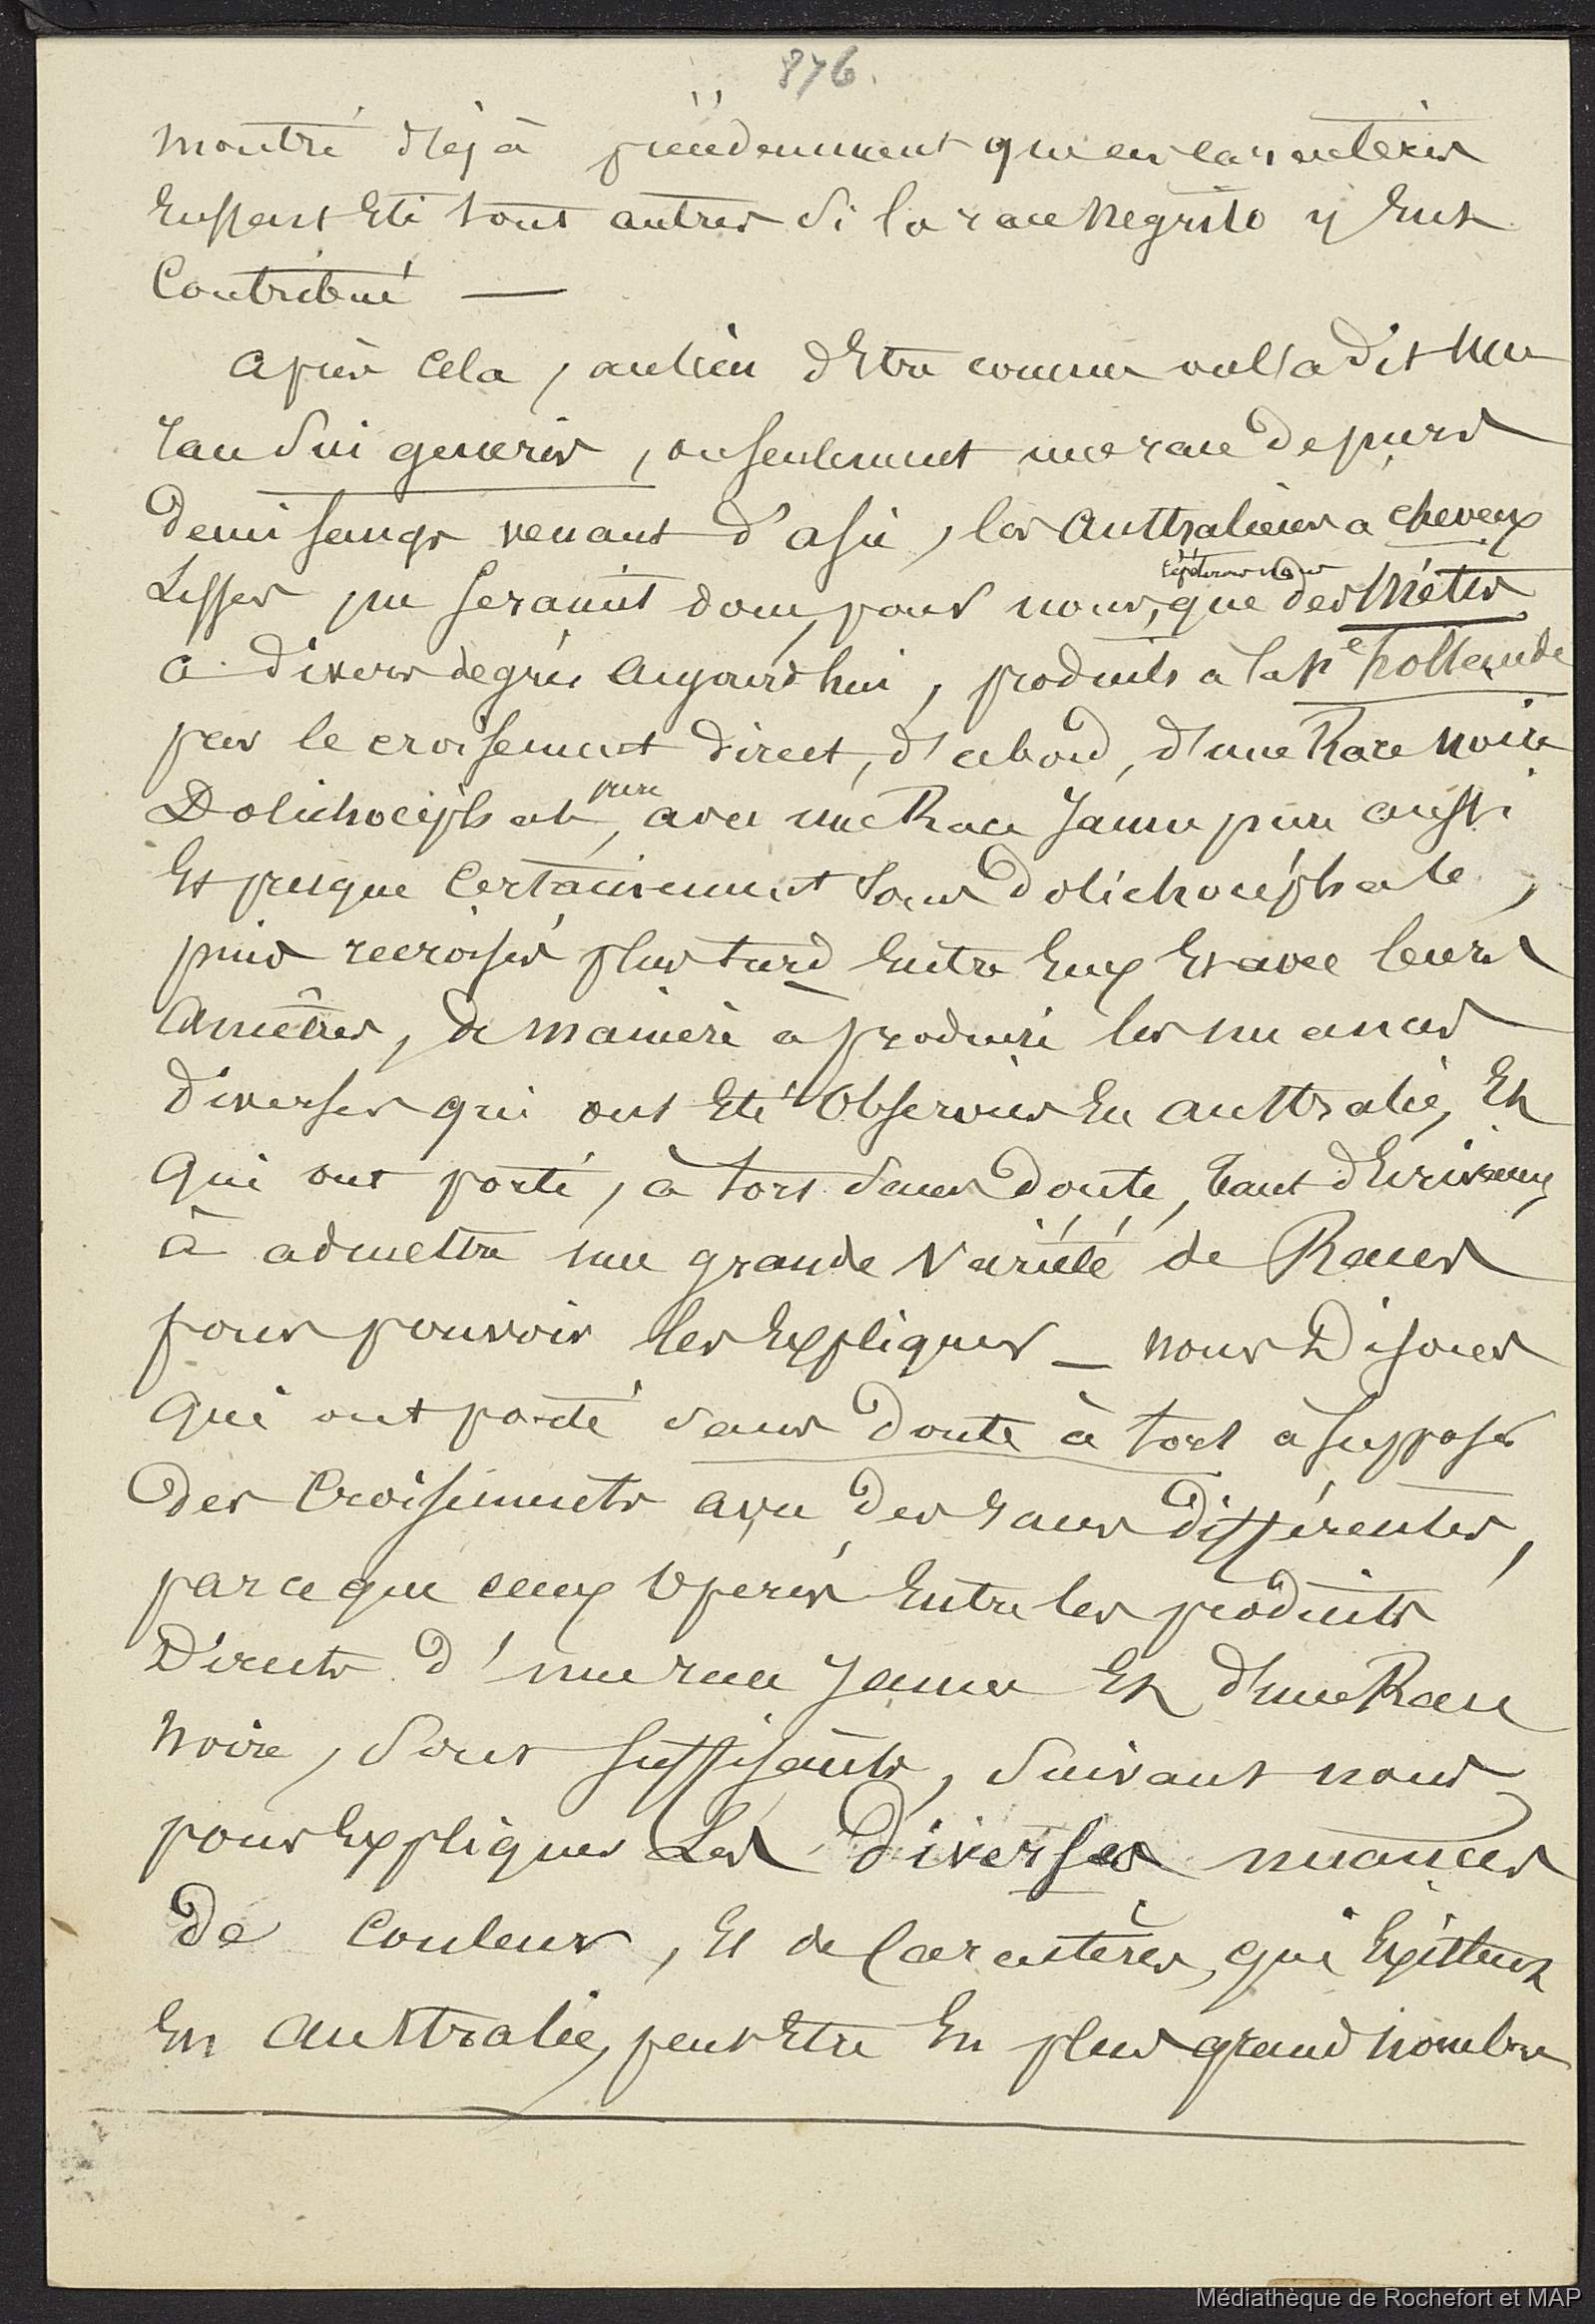 876.
montré déjà précédemment que ces caractères
Eussent Eté tout autres si la race Negrito y Eut
Contribué —
après cela, au lieu d'Etre comme on l'a dit une
race sui generis, ou seulement une race de purs
demi sangs venant d'asie, les Australiens a cheveux
Lisses ne seraient donc, pour nous, répéterons nous que des Métis
a divers degrés aujourd'hui, produits a la Nle hollande
par le croisement direct, d'abord, d'une Race noire
Dolichocéphale pure, avec une Race Jaune pure aussi
Et presque Certainement Sous Dolichocéphale,
puis recroisés plus tard Entre Eux Et avec leurs
Ancêtres, de manière a produire les nuances
diverses qui ont Eté Observées En australie, Et
qui ont porté, à tort sans Doute, tant d'Ecrivains
à admettre une grande Variété de Races
pour pouvoir les Expliquer — nous Disons
qui ont porté sans Doute à tort à supposer
des Croisements avec des races différentes,
parce que ceux Opérés Entre les produits
Directs d'une race Jaune Et d'une Race
Noire, sont suffisants, suivant nous
pour Expliquer Les diverses nuances
De Couleur, Et de Caractères, qui Existent
En australie, peut Etre En plus grand nombre
Médiathèque de Rochefort et MAP